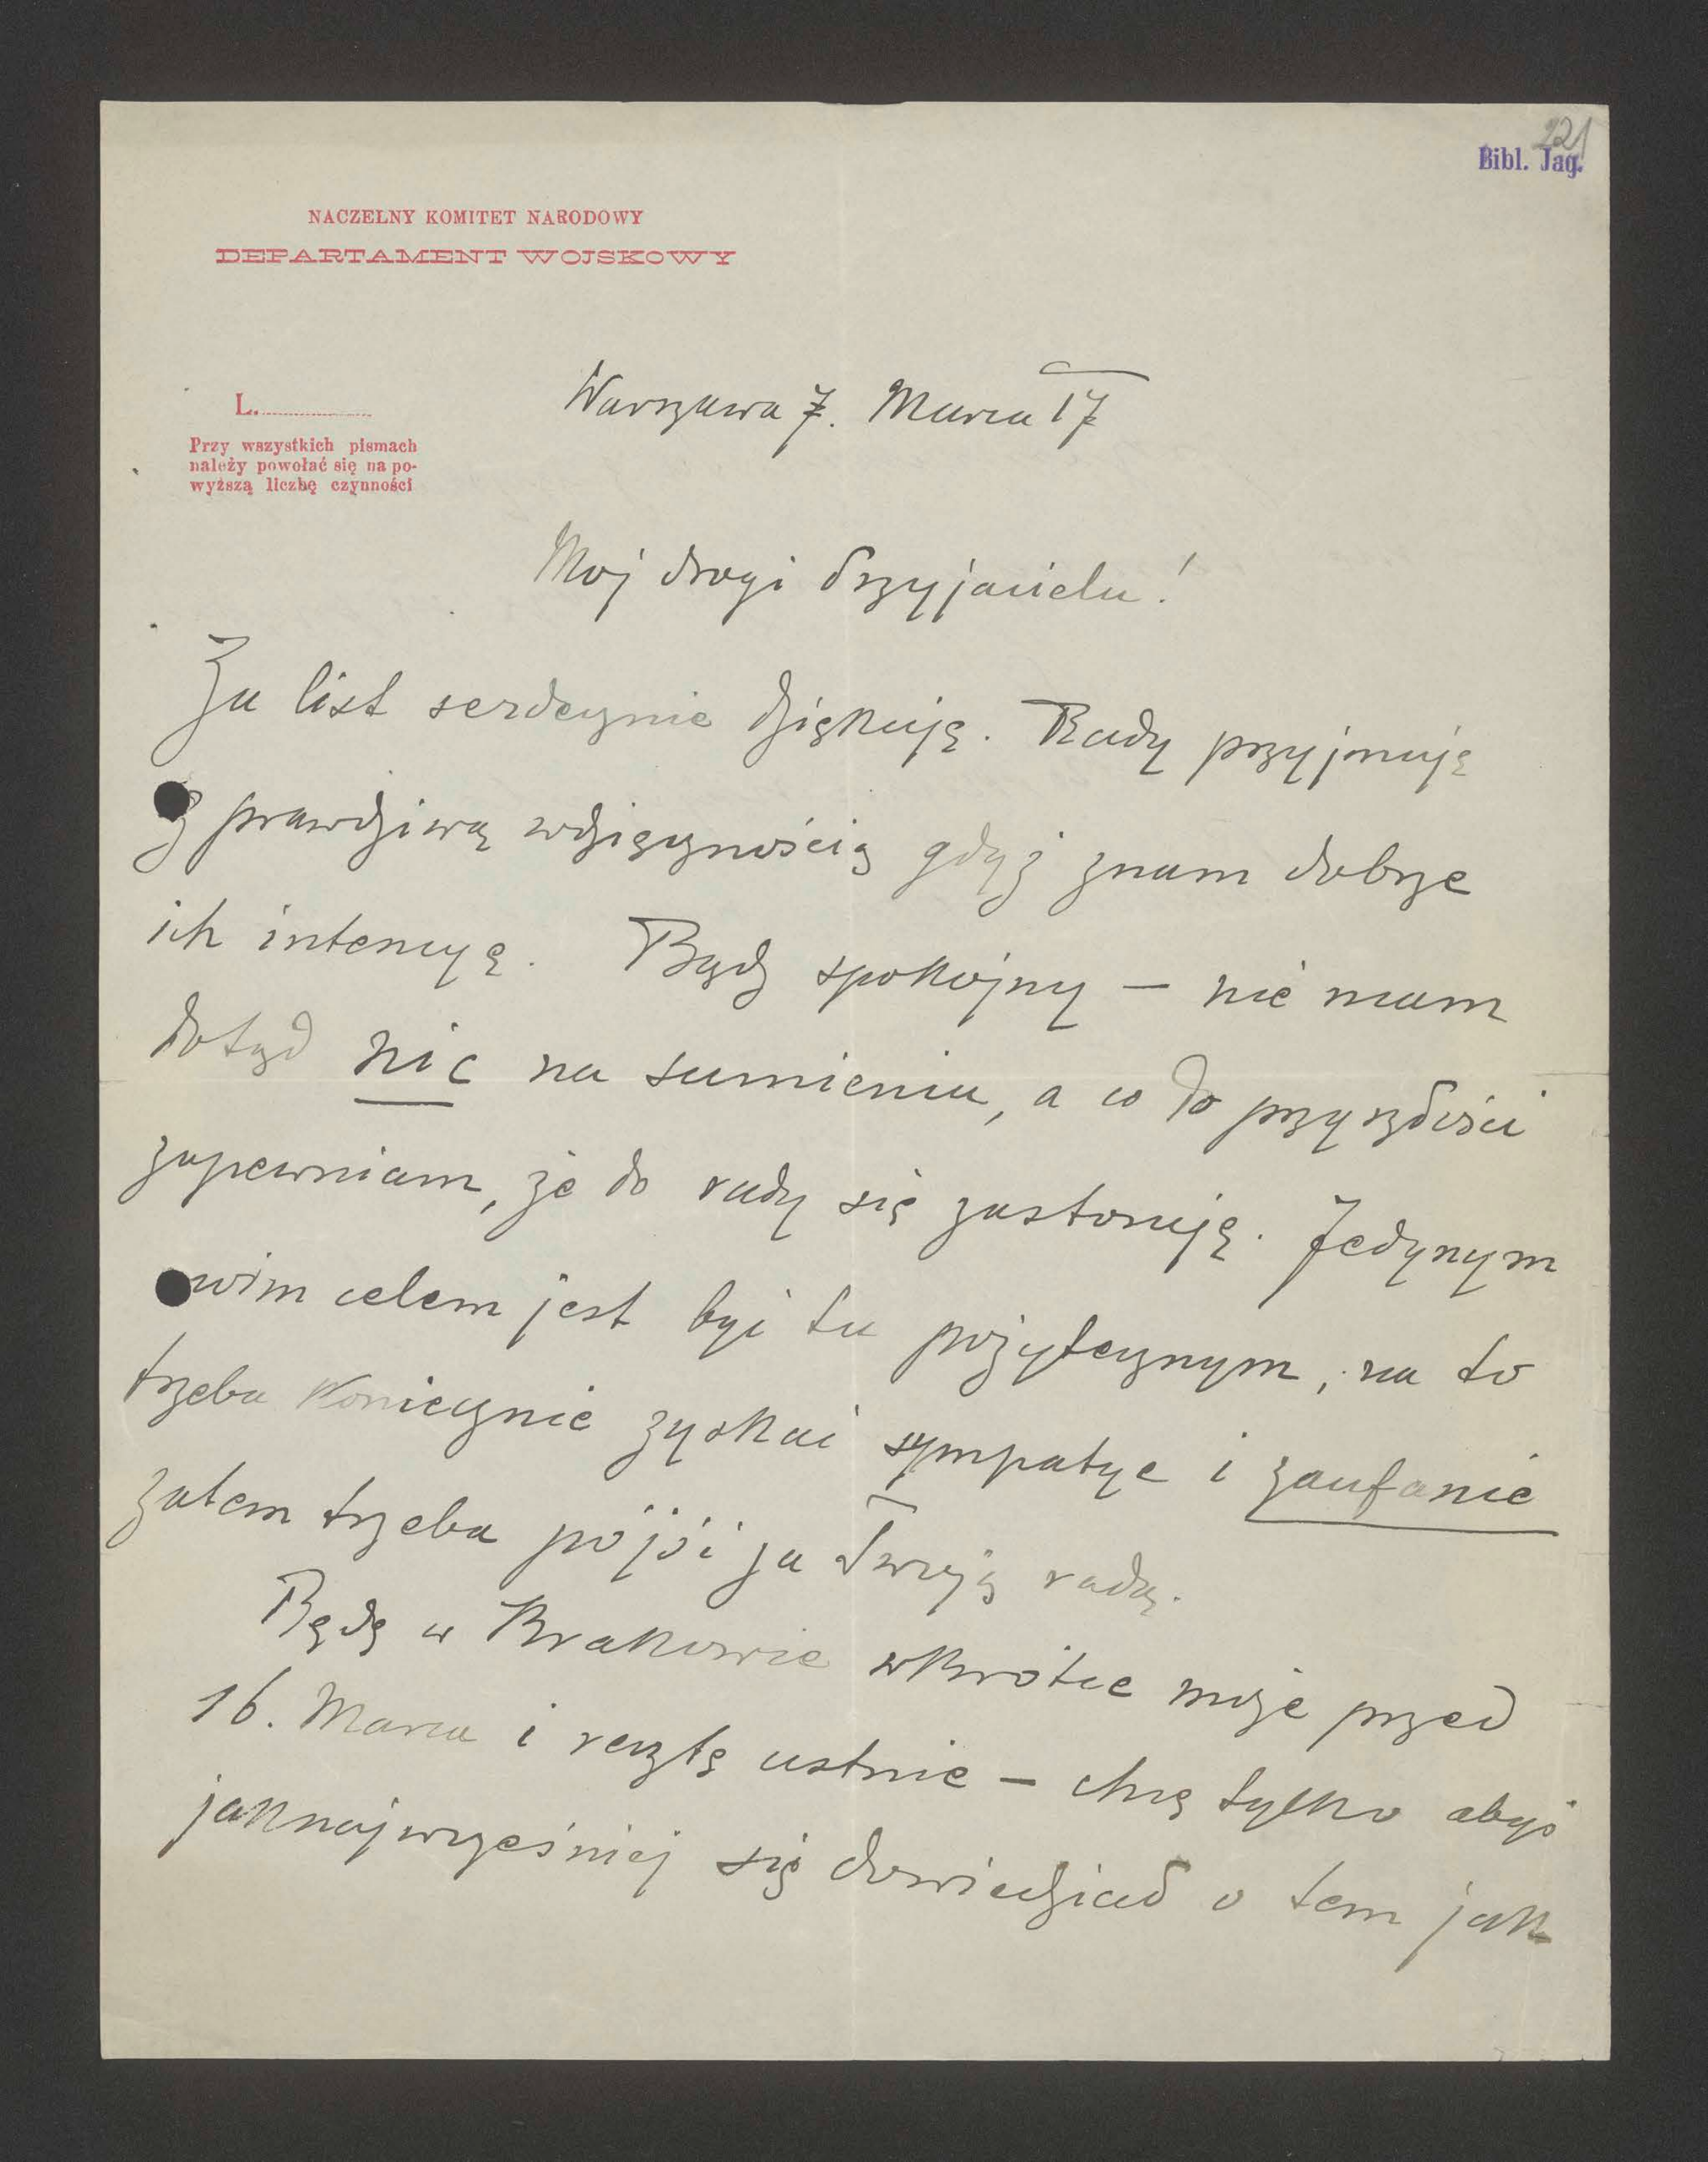 221
Bibl. Jag.
NACZELNY KOMITET NARODOWY
DEPARTAMENT WOJSKOWY
L.
Przy wszystkich pismach
należy powołać się na po-
wyższą liczbę czynności
Warszawa 7. Marca 17
Moj drogi Przyjacielu!
Za list serdecznie dziękuję. Rady przyjmuję
z prawdziwą wdzięcznością gdyż znam dobrze
ich intencyę. Bądź spokojny – nie mam
dotąd nic na sumieniu, a co do przyszłości
zapewniam, że do rady się zastosuję. Jedynym
celem jest być tu pożytecznym, na to
trzeba koniecznie zyskać sympatye i zaufanie
zatem trzeba pójść za Twoją radą.
Będę w Krakowie wkrótce może przed
16. Marca i resztę ustnie – chcę tylko abyś
jaknajwcześniej się dowiedział o tem jak